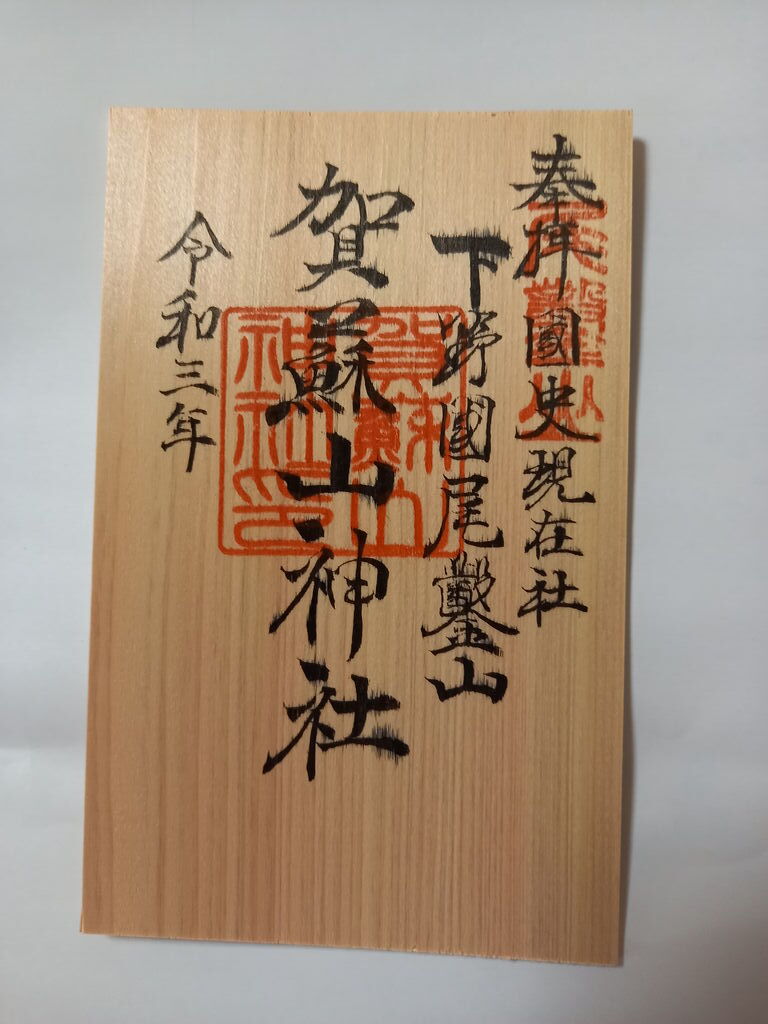 奉拝國史現在社
下野國尾鑿山
賀蘇山神社
令和三年
尾鑿山
賀蘇山神社印